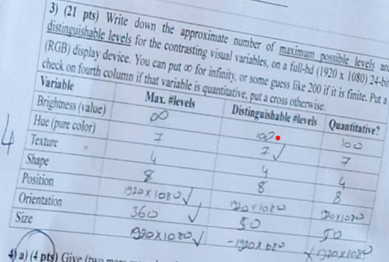 3) (21 pts) Write down the approximate number of maximum possible levels and
distinguishable levels for the contrasting visual variables, on a full-hd (1920 x 1080) 24-bit
(RGB) display device. You can put ∞ for infinity, or some guess like 200 if it is finite. Put a
check on fourth column if that variable is quantitative, put a cross otherwise.
Variable Max. #levels Distinguishable #levels Quantitative?
Brightness (value) ∞ 100 100
Hue (pure color) 7 7 ✓ 7
Texture 4 4 4
Shape 8 8 8
Position 1920x1080 ✓ 1920x1080 1920x1080
Orientation 360 ✓ 50 50
Size 1920x1080 ✓ -1920x1080 1920x1080
4
4) a) (4 pts) Give (two